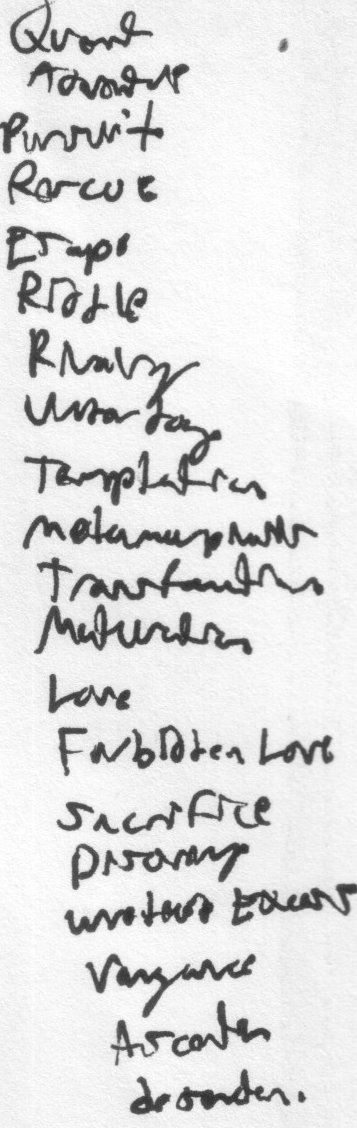 Quest
Adventure
Pursuit
Rescue
Escape
Riddle
Rivalry
Underdog
Temptation
Metamorphosis
Transformation
Maturation
Love
Forbidden Love
Sacrifice
Discovery
Wretched Excess
Vengeance
Ascension
descension.